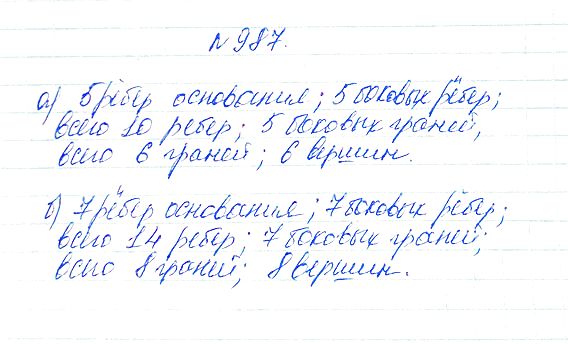 №987.
а) 5 рёбер основания; 5 боковых рёбер;
всего 10 ребер; 5 боковых граней,
всего 6 граней; 6 вершин.
б) 7 рёбер основания; 7 боковых рёбер;
всего 14 ребер; 7 боковых граней;
всего 8 граней; 8 вершин.